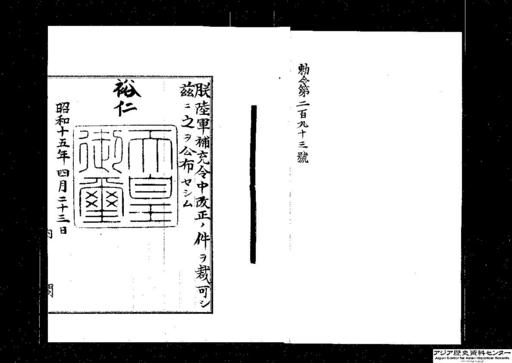 勅令第二百九十三號
朕陸軍補充令中改正ノ件ヲ裁可シ
茲ニ之ヲ公布セシム
裕仁
天皇御璽
昭和十五年四月二十三日
内閣
アジア歴史資料センター
Japan Center for Asian Historical Records